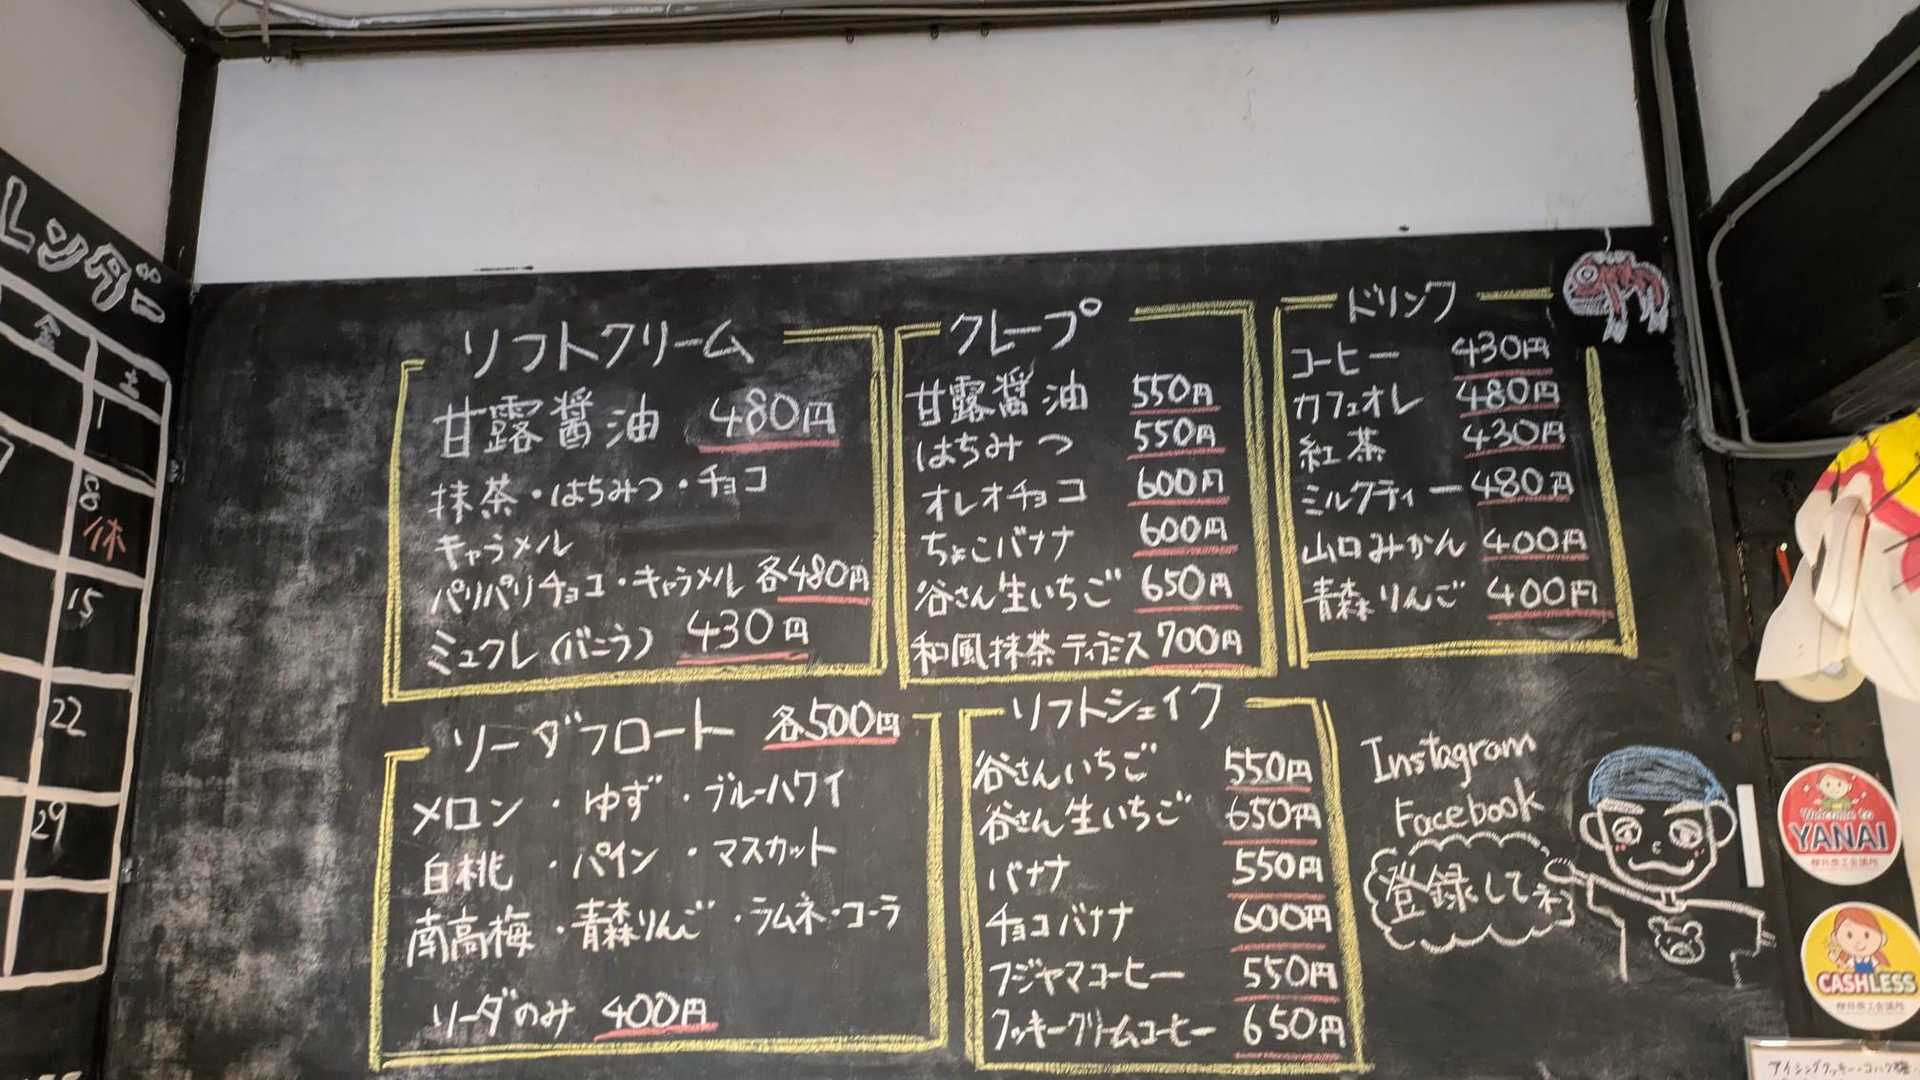 レンダー
金 土
1
7 8
休
15
22
29
ソフトクリーム
甘露醤油 480円
抹茶・はちみつ・チョコ
キャラメル
パリパリチョコ・キャラメル 各480円
ミュクレ(バニラ) 430円
クレープ
甘露醤油 550円
はちみつ 550円
オレオチョコ 600円
ちょこバナナ 600円
谷さん生いちご 650円
和風抹茶ティラミス 700円
ドリンク
コーヒー 430円
カフェオレ 480円
紅茶 430円
ミルクティー 480円
山口みかん 400円
青森りんご 400円
ソーダフロート 各500円
メロン・ゆず・ブルーハワイ
白桃・パイン・マスカット
南高梅・青森りんご・ラムネ・コーラ
ソーダのみ 400円
ソフトシェイク
谷さんいちご 550円
谷さん生いちご 650円
バナナ 550円
チョコバナナ 600円
フジヤマコーヒー 550円
クッキークリームコーヒー 650円
Instagram
Facebook
登録してネ
Welcome to
YANAI
柳井商工会議所
CASHLESS
柳井商工会議所